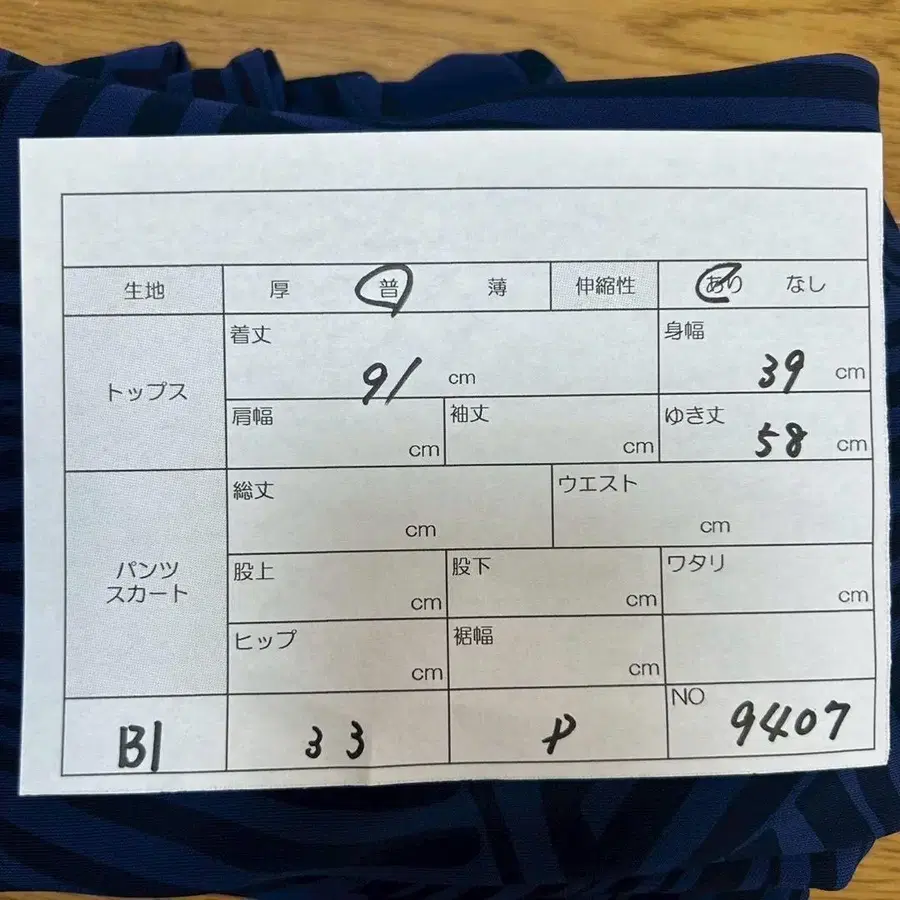 生地 厚 普 薄 伸縮性 あり なし
トップス
着丈 91 cm
身幅 39 cm
肩幅 cm
袖丈 cm
ゆき丈 58 cm
パンツ
スカート
総丈 cm
ウエスト cm
股上 cm
股下 cm
ワタリ cm
ヒップ cm
裾幅 cm
B1 33 P NO 9407